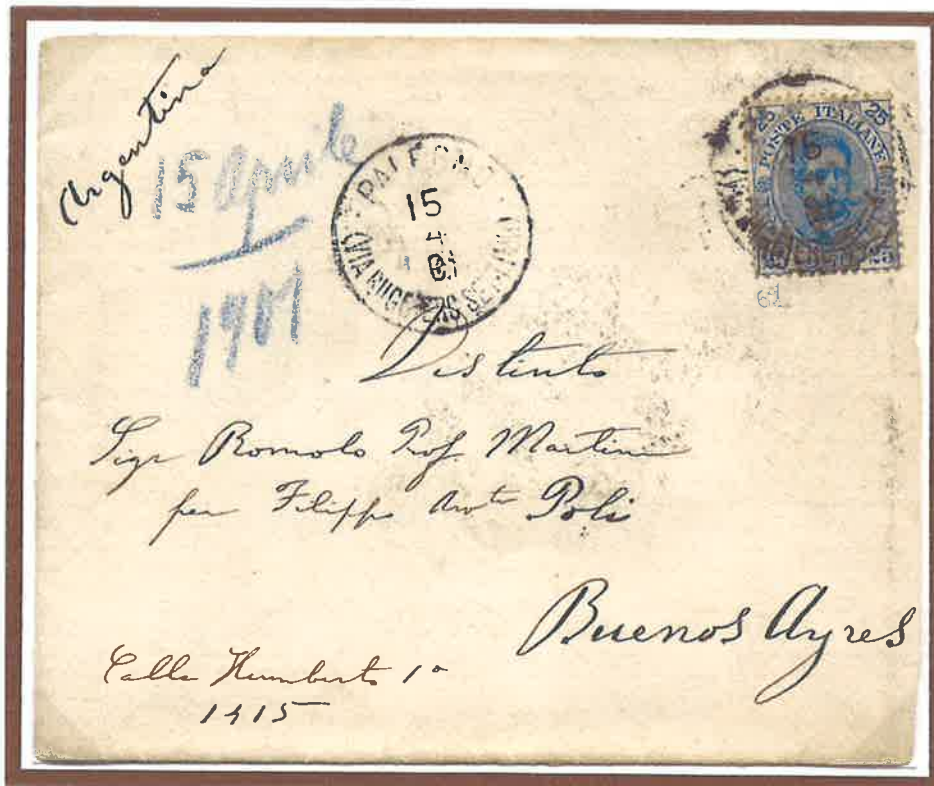 Argentina
15 Aprile
1901
PALERMO
15
4
01
(VIA RUGGERO SETTIMO)
25 25
POSTE ITALIANE
25 25
61
Distinto
Sigr Romolo Prof. Martini
per Filippo Poli
Buenos Ayres
Calle Humberto 1º
1415